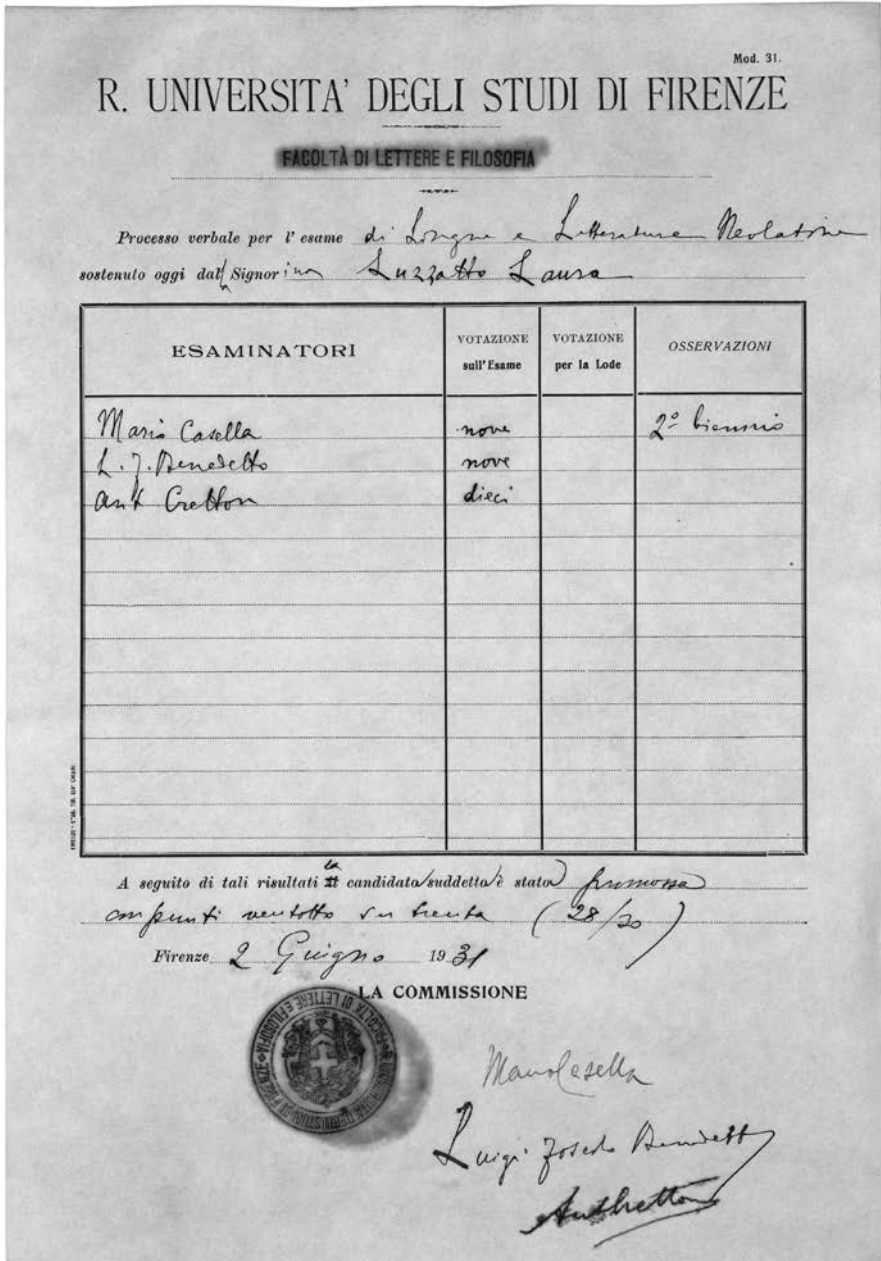 Mod. 31.
R. UNIVERSITA' DEGLI STUDI DI FIRENZE
FACOLTÀ DI LETTERE E FILOSOFIA
Processo verbale per l'esame di Lingue e Letterature Neolatine
sostenuto oggi dalla Signorina Luzzatto Laura
ESAMINATORI
VOTAZIONE sull'Esame
VOTAZIONE per la Lode
OSSERVAZIONI
Mario Casella nove 2º biennio
L. F. Benedetto nove
Ant Cretton dieci
A seguito di tali risultati la candidata suddetta è stata promossa
con punti ventotto su trenta (28/30)
Firenze 2 Giugno 1931
LA COMMISSIONE
Mario Casella
Luigi Foscolo Benedetto